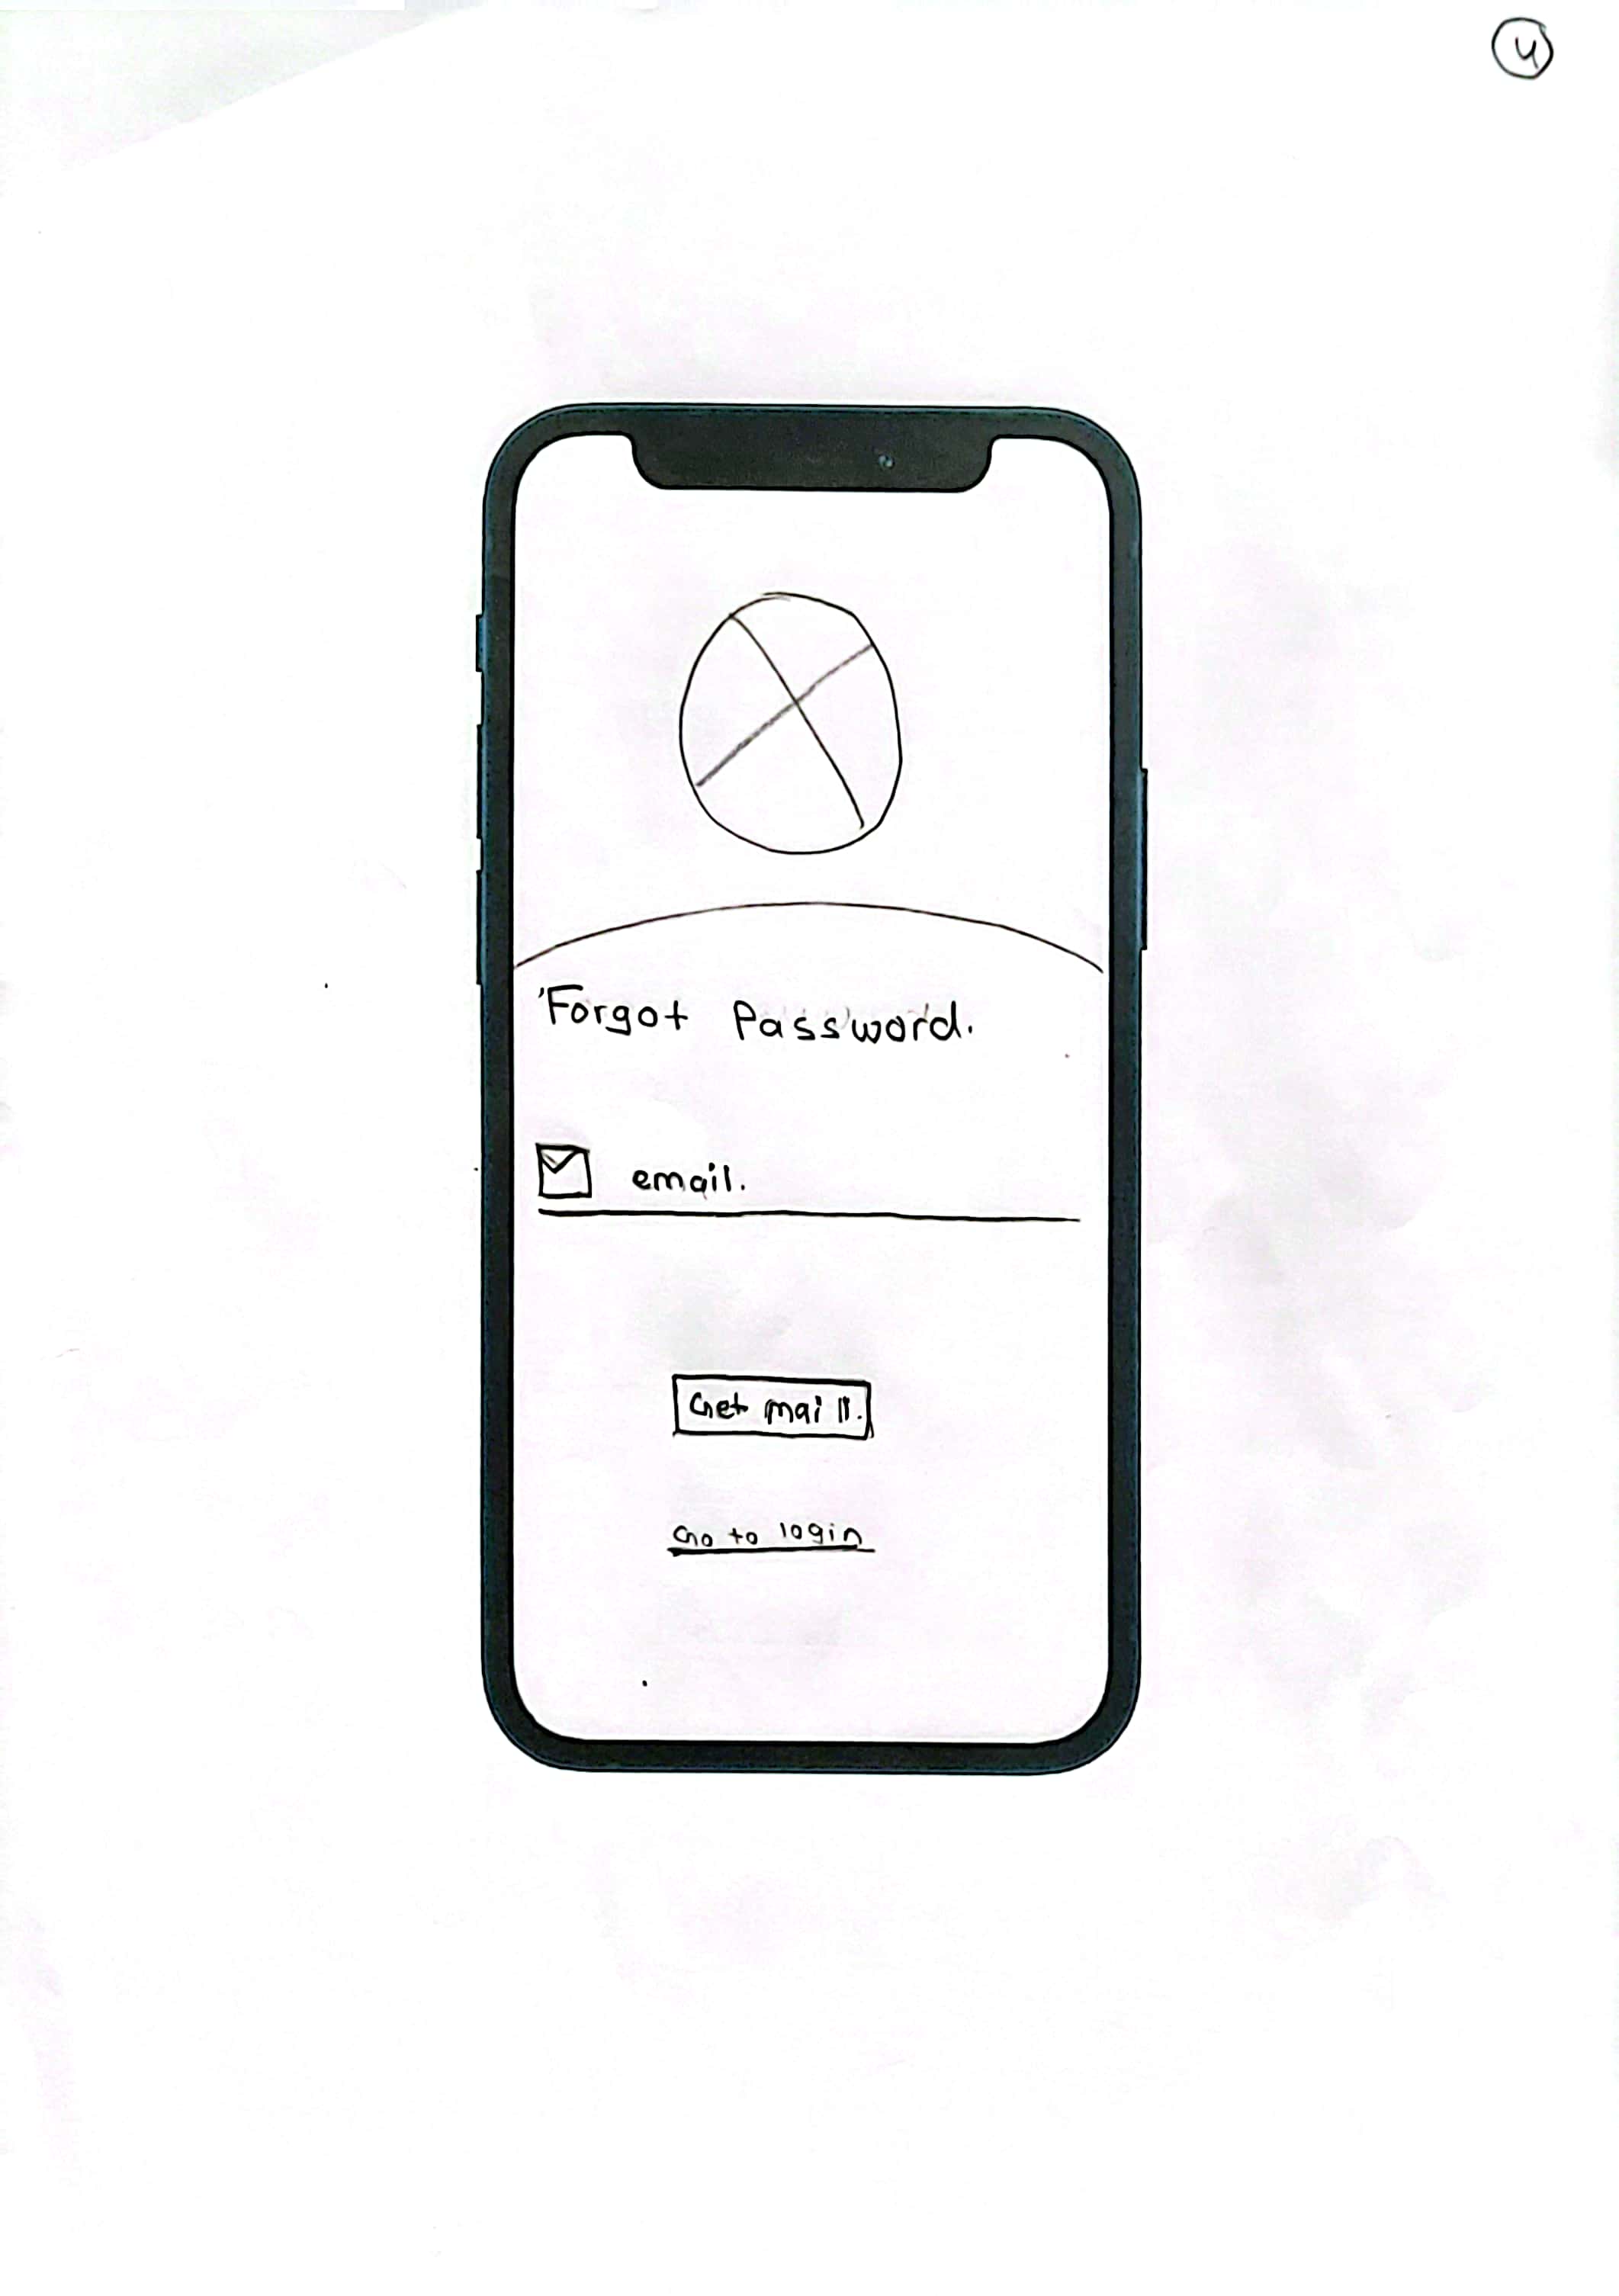 4
Forgot Password.
email.
Get mail.
Go to login